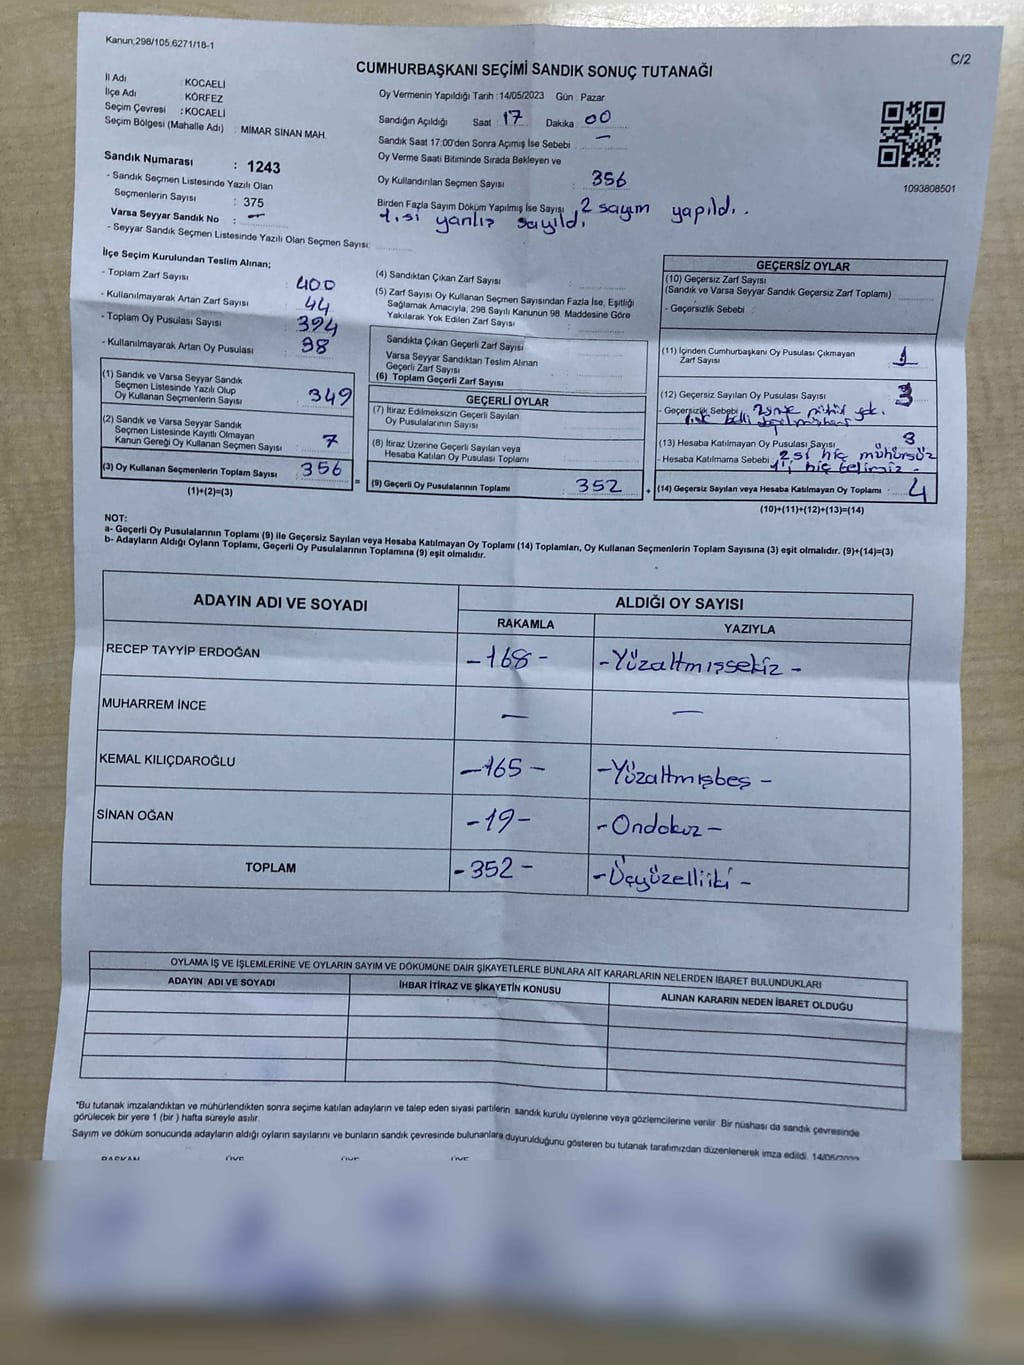 Kanun;298/105,6271/18-1
C/2
CUMHURBAŞKANI SEÇİMİ SANDIK SONUÇ TUTANAĞI
İl Adı KOCAELİ
İlçe Adı KÖRFEZ
Seçim Çevresi : KOCAELİ
Seçim Bölgesi (Mahalle Adı) : MİMAR SİNAN MAH.
Sandık Numarası : 1243
- Sandık Seçmen Listesinde Yazılı Olan
Seçmenlerin Sayısı : 375
Varsa Seyyar Sandık No : -
- Seyyar Sandık Seçmen Listesinde Yazılı Olan Seçmen Sayısı:
Oy Vermenin Yapıldığı Tarih : 14/05/2023 Gün : Pazar
Sandığın Açıldığı Saat 17 Dakika 00
Sandık Saat 17:00'den Sonra Açımış İse Sebebi : -
Oy Verme Saati Bitiminde Sırada Bekleyen ve
Oy Kullandırılan Seçmen Sayısı : 356
Birden Fazla Sayım Döküm Yapılmış İse Sayısı 2 sayım yapıldı.
1.isi yanlış sayıldı
1093808501
İlçe Seçim Kurulundan Teslim Alınan;
- Toplam Zarf Sayısı : 400
- Kullanılmayarak Artan Zarf Sayısı : 44
- Toplam Oy Pusulası Sayısı : 394
- Kullanılmayarak Artan Oy Pusulası : 38
(1) Sandık ve Varsa Seyyar Sandık
Seçmen Listesinde Yazılı Olup
Oy Kullanan Seçmenlerin Sayısı : 349
(2) Sandık ve Varsa Seyyar Sandık
Seçmen Listesinde Kayıtlı Olmayan
Kanun Gereği Oy Kullanan Seçmen Sayısı : 7
(3) Oy Kullanan Seçmenlerin Toplam Sayısı : 356
(1)+(2)=(3)
=
(4) Sandıktan Çıkan Zarf Sayısı :
(5) Zarf Sayısı Oy Kullanan Seçmen Sayısından Fazla İse, Eşitliği
Sağlamak Amacıyla, 298 Sayılı Kanunun 98. Maddesine Göre
Yakılarak Yok Edilen Zarf Sayısı :
Sandıkta Çıkan Geçerli Zarf Sayısı
Varsa Seyyar Sandıktan Teslim Alınan
Geçerli Zarf Sayısı
(6) Toplam Geçerli Zarf Sayısı
GEÇERLİ OYLAR
(7) İtiraz Edilmeksizin Geçerli Sayılan
Oy Pusulalarının Sayısı
(8) İtiraz Üzerine Geçerli Sayılan veya
Hesaba Katılan Oy Pusulası Toplamı
(9) Geçerli Oy Pusulalarının Toplamı : 352
+
GEÇERSİZ OYLAR
(10) Geçersiz Zarf Sayısı
(Sandık ve Varsa Seyyar Sandık Geçersiz Zarf Toplamı)
- Geçersizlik Sebebi :
(11) İçinden Cumhurbaşkanı Oy Pusulası Çıkmayan
Zarf Sayısı : 1
(12) Geçersiz Sayılan Oy Pusulası Sayısı : 3
- Geçersizlik Sebebi
(13) Hesaba Katılmayan Oy Pusulası Sayısı : 3
- Hesaba Katılmama Sebebi 2 si hiç mühürsüz
1'i hiç
(14) Geçersiz Sayılan veya Hesaba Katılmayan Oy Toplamı : 4
(10)+(11)+(12)+(13)=(14)
NOT:
a- Geçerli Oy Pusulalarının Toplamı (9) ile Geçersiz Sayılan veya Hesaba Katılmayan Oy Toplamı (14) Toplamları, Oy Kullanan Seçmenlerin Toplam Sayısına (3) eşit olmalıdır. (9)+(14)=(3)
b- Adayların Aldığı Oyların Toplamı, Geçerli Oy Pusulalarının Toplamına (9) eşit olmalıdır.
ADAYIN ADI VE SOYADI ALDIĞI OY SAYISI
RAKAMLA YAZIYLA
RECEP TAYYİP ERDOĞAN -168- -Yüzaltmışsekiz-
MUHARREM İNCE - -
KEMAL KILIÇDAROĞLU -165- -Yüzaltmışbeş-
SİNAN OĞAN -19- -Ondokuz-
TOPLAM -352- -Üçyüzelliiki-
OYLAMA İŞ VE İŞLEMLERİNE VE OYLARIN SAYIM VE DÖKÜMÜNE DAİR ŞİKAYETLERLE BUNLARA AİT KARARLARIN NELERDEN İBARET BULUNDUKLARI
ADAYIN ADI VE SOYADI İHBAR İTİRAZ VE ŞİKAYETİN KONUSU ALINAN KARARIN NEDEN İBARET OLDUĞU
*Bu tutanak imzalandıktan ve mühürlendikten sonra seçime katılan adayların ve talep eden siyasi partilerin sandık kurulu üyelerine veya gözlemcilerine verilir. Bir nüshası da sandık çevresinde
görülecek bir yere 1 (bir ) hafta süreyle asılır.
Sayım ve döküm sonucunda adayların aldığı oyların sayılarını ve bunların sandık çevresinde bulunanlara duyurulduğunu gösteren bu tutanak tarafımızdan düzenlenerek imza edildi. 14/05/2023
BAŞKAN ÜYE ÜYE ÜYE